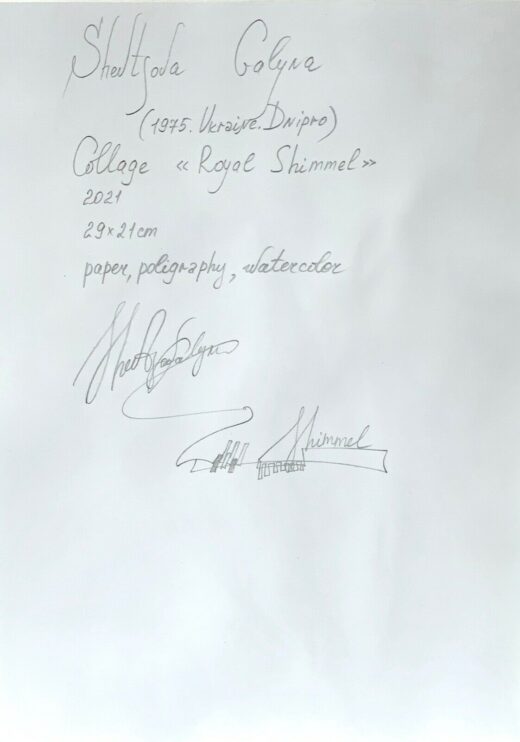 Shevtsova Galyna
(1975. Ukraine. Dnipro)
Collage « Royal Shimmel »
2021
29×21cm
paper, poligraphy, watercolor
Shevtsova Galyna
Shimmel